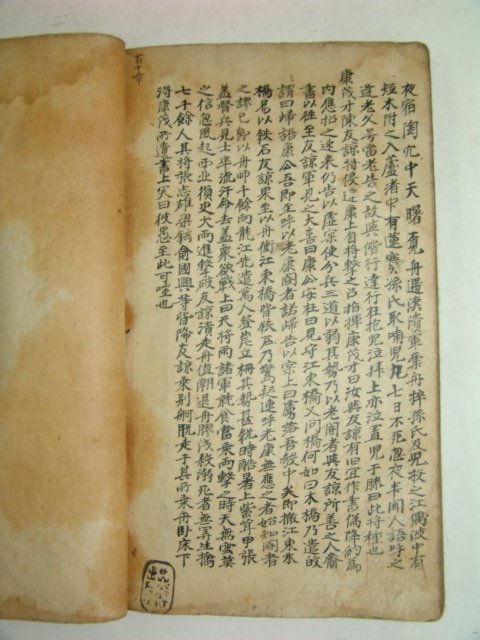 夜宿陶穴中天曙覓舟遇漢潰軍奪舟捽孫氏及兒投之江偶波中有
短木附之入蘆渚中有蓮實孫氏取哺兒凡七日不死忽夜半聞人語呼之
逢老父号雷老告之故與偕行達行在抱兒泣拜上亦泣置兒于膝曰此將種也
康茂才陳友諒將侵近康上自將擊之召指揮康茂才曰汝與友諒有旧宜作書偽降約爲
内應招之速来仍告以虛宗使分兵三道以弱其勢乃以老閽者與友諒所善之人齎
書以往至友諒軍見之大喜曰康公安在曰見守江東橋又問橋何如曰木橋乃遣故
謂曰歸語康公吾即至呼以老康閽者諾歸告以宗上曰虜落吾彀中矣即撤江東木
橋易以鉄石友諒果至以舟衝江東橋皆鉄石乃驚起連呼老康無應之者始知閽者
之謬已即以舟師千餘向龍江先遣萬人登岸立柵其勢甚銳時酷暑上紫茸甲張
盖督兵見士卒流汗命去盖衆欲戰上曰天將雨諸軍就食當乘雨擊之時天無雲莫
之信忽風起西北須臾大雨進擊敗友諒潰走舟值潮退舟膠浅殺溺死者無筭生擒
七千餘人其將張志雄梁鉉俞國興等皆降友諒乘別舸脫走于其所乘舟臥床下
得康茂所遺書上笑曰彼愚至此可嗤也
百十章